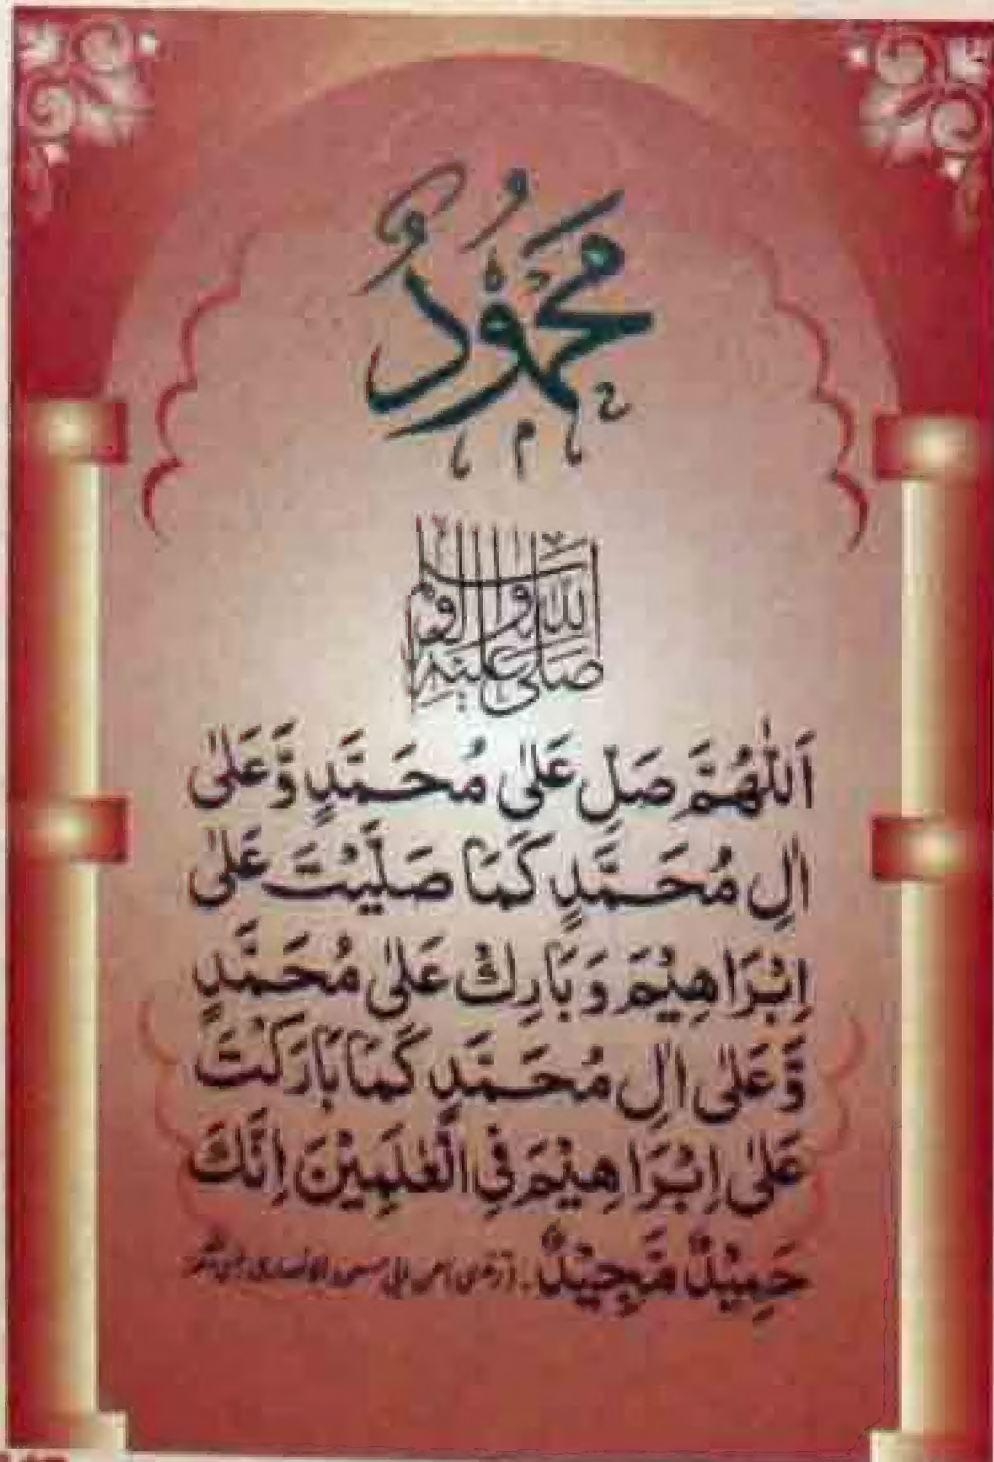 مَحْمُوْدٌ
صلى الله عليه واله وسلم
اَللّٰهُمَّ صَلِّ عَلٰی مُحَمَّدٍ وَّعَلٰی
اٰلِ مُحَمَّدٍ كَمَا صَلَّيْتَ عَلٰی
اِبْرَاهِيْمَ وَبَارِكْ عَلٰی مُحَمَّدٍ
وَّعَلٰی اٰلِ مُحَمَّدٍ كَمَا بَارَكْتَ
عَلٰی اِبْرَاهِيْمَ فِی الْعٰلَمِيْنَ اِنَّكَ
حَمِيْدٌ مَّجِيْدٌ